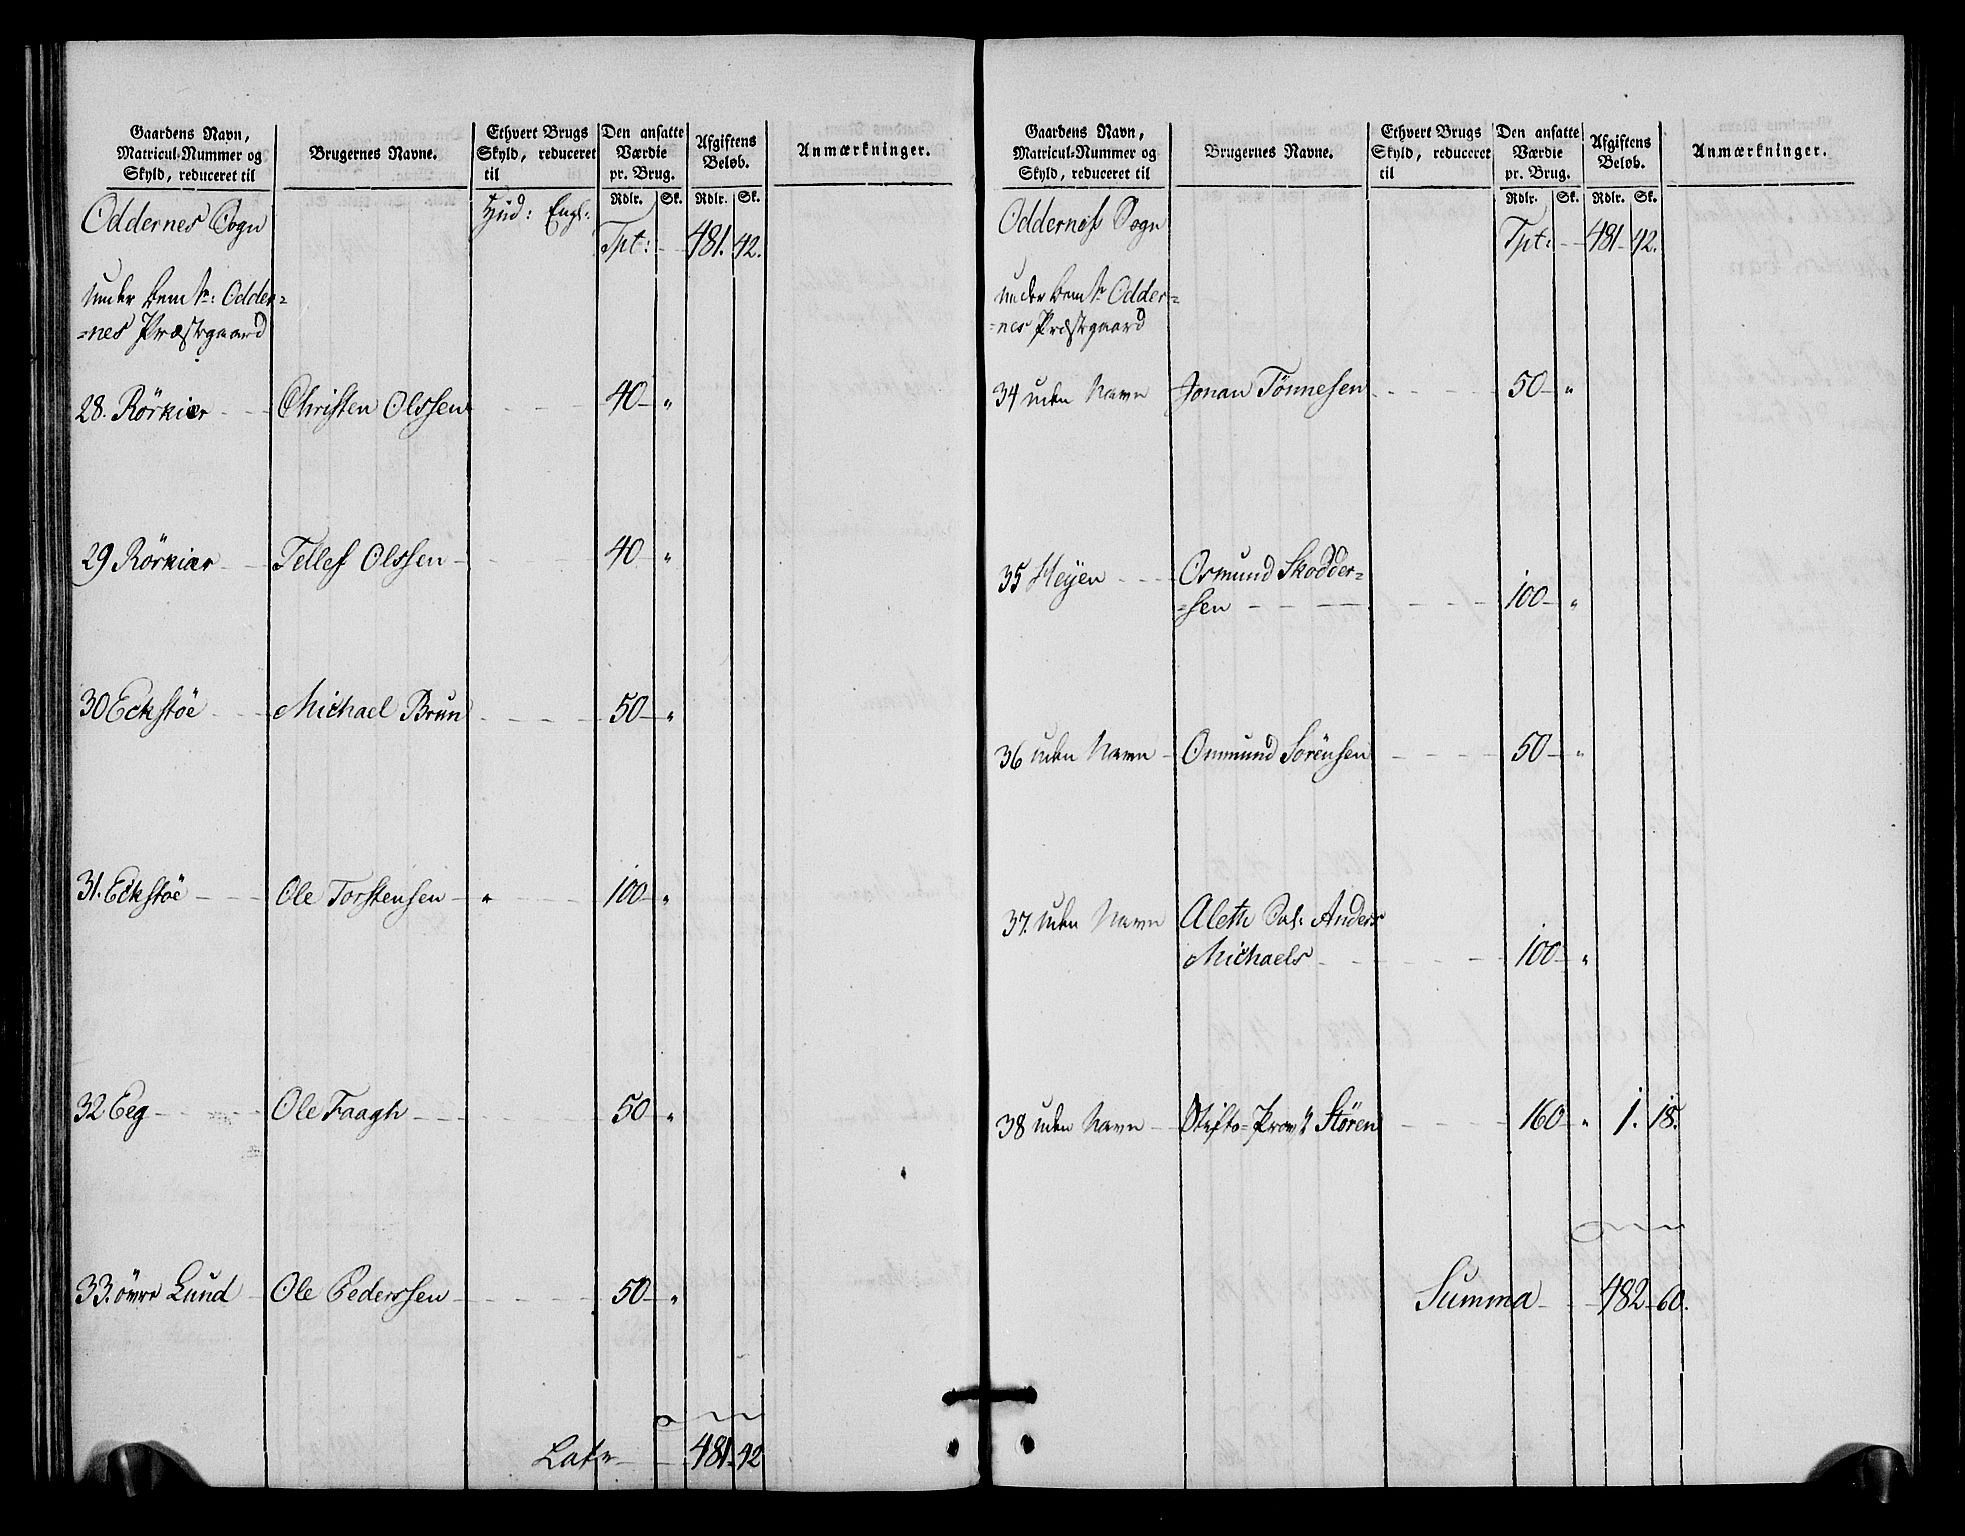 Gaardens Navn,
Matricul-Nummer og
Skyld, reduceret til
Brugernes Navne.
Ethvert Brugs
Skyld, reduceret
til
Den ansatte
Værdie
pr. Brug.
Afgiftens
Beløb.
Anmærkninger.
Rdlr. Sk. Rdlr. Sk.
Oddernes Sogn
Hud: Engl:
Tpt: 481. 42.
under bem te: Odder=
=nes Præstegaard
28. Rörkier Christen Olssen 40 "
29 Rörkier Tellef Olssen 40 "
30 Eckstöe Michael Brun 50 "
31. Eckstöe Ole Torstensen " 100 "
32 Eeg Ole Faagh 50 "
33. övre Lund Ole Pederssen 50 "
Lat 481. 42
Gaardens Navn,
Matricul-Nummer og
Skyld, reduceret til
Brugernes Navne.
Ethvert Brugs
Skyld, reduceret
til
Den ansatte
Værdie
pr. Brug.
Afgiftens
Beløb.
Anmærkninger.
Rdlr. Sk. Rdlr. Sk.
Oddernes Sogn
Tpt: 481 42.
under bem te Odder=
=nes Præstegaard
34 uden Navn Jonan Tönnesen 50 "
35 Heyen Osmund Skodder=
=sen 100 "
36 uden Navn Omund Sörensen 50 "
37. uden Navn Aleth Sal: Anders
Michaels 100 "
38 uden Navn Stifts=Provst Stören 160 " 1. 18.
Summa 482 60.